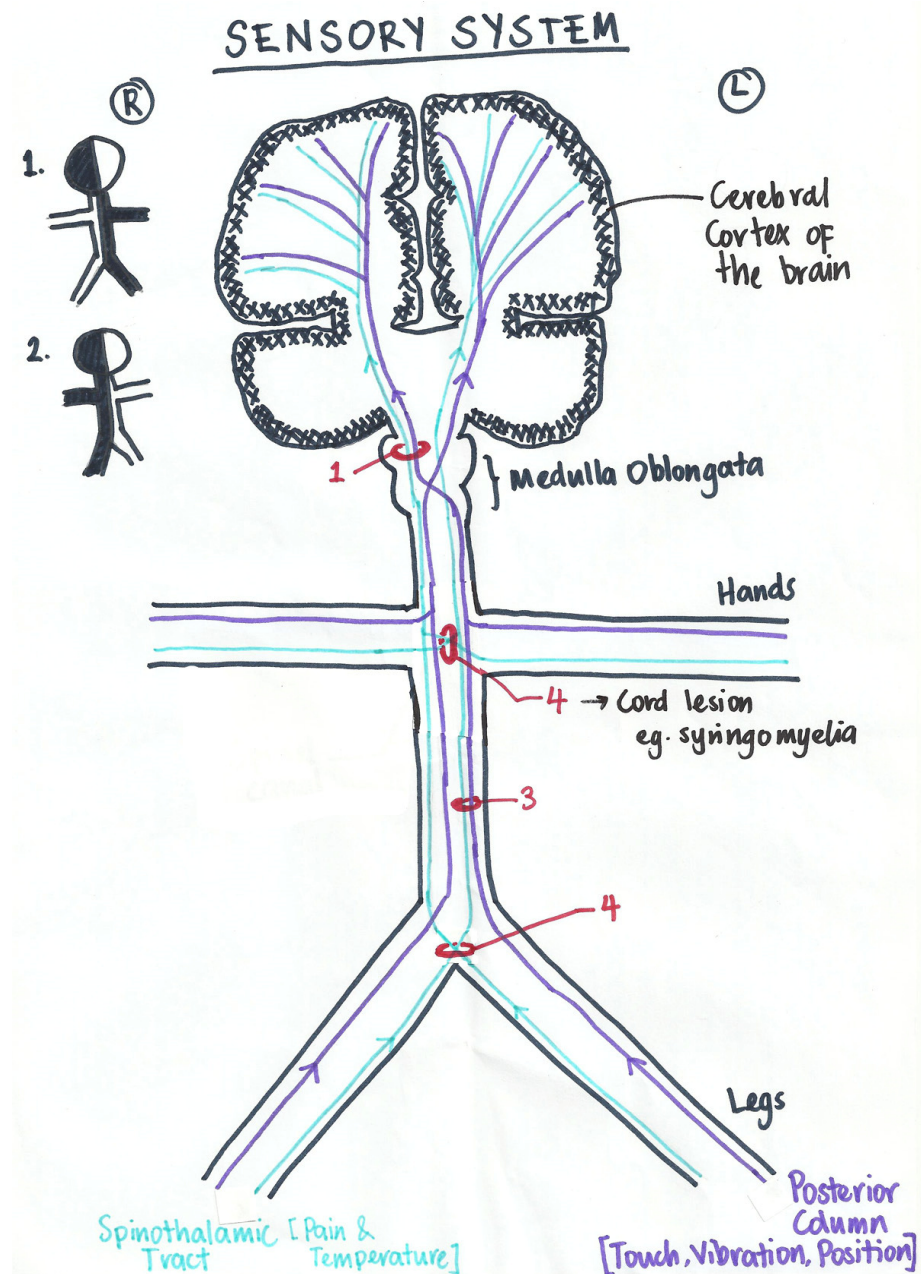 SENSORY SYSTEM
R
L
1.
Cerebral
Cortex of
the brain
2.
1
Medulla Oblongata
Hands
4 → Cord lesion
eg. syringomyelia
3
4
Legs
Spinothalamic [Pain &
Tract Temperature]
Posterior
Column
[Touch, Vibration, Position]